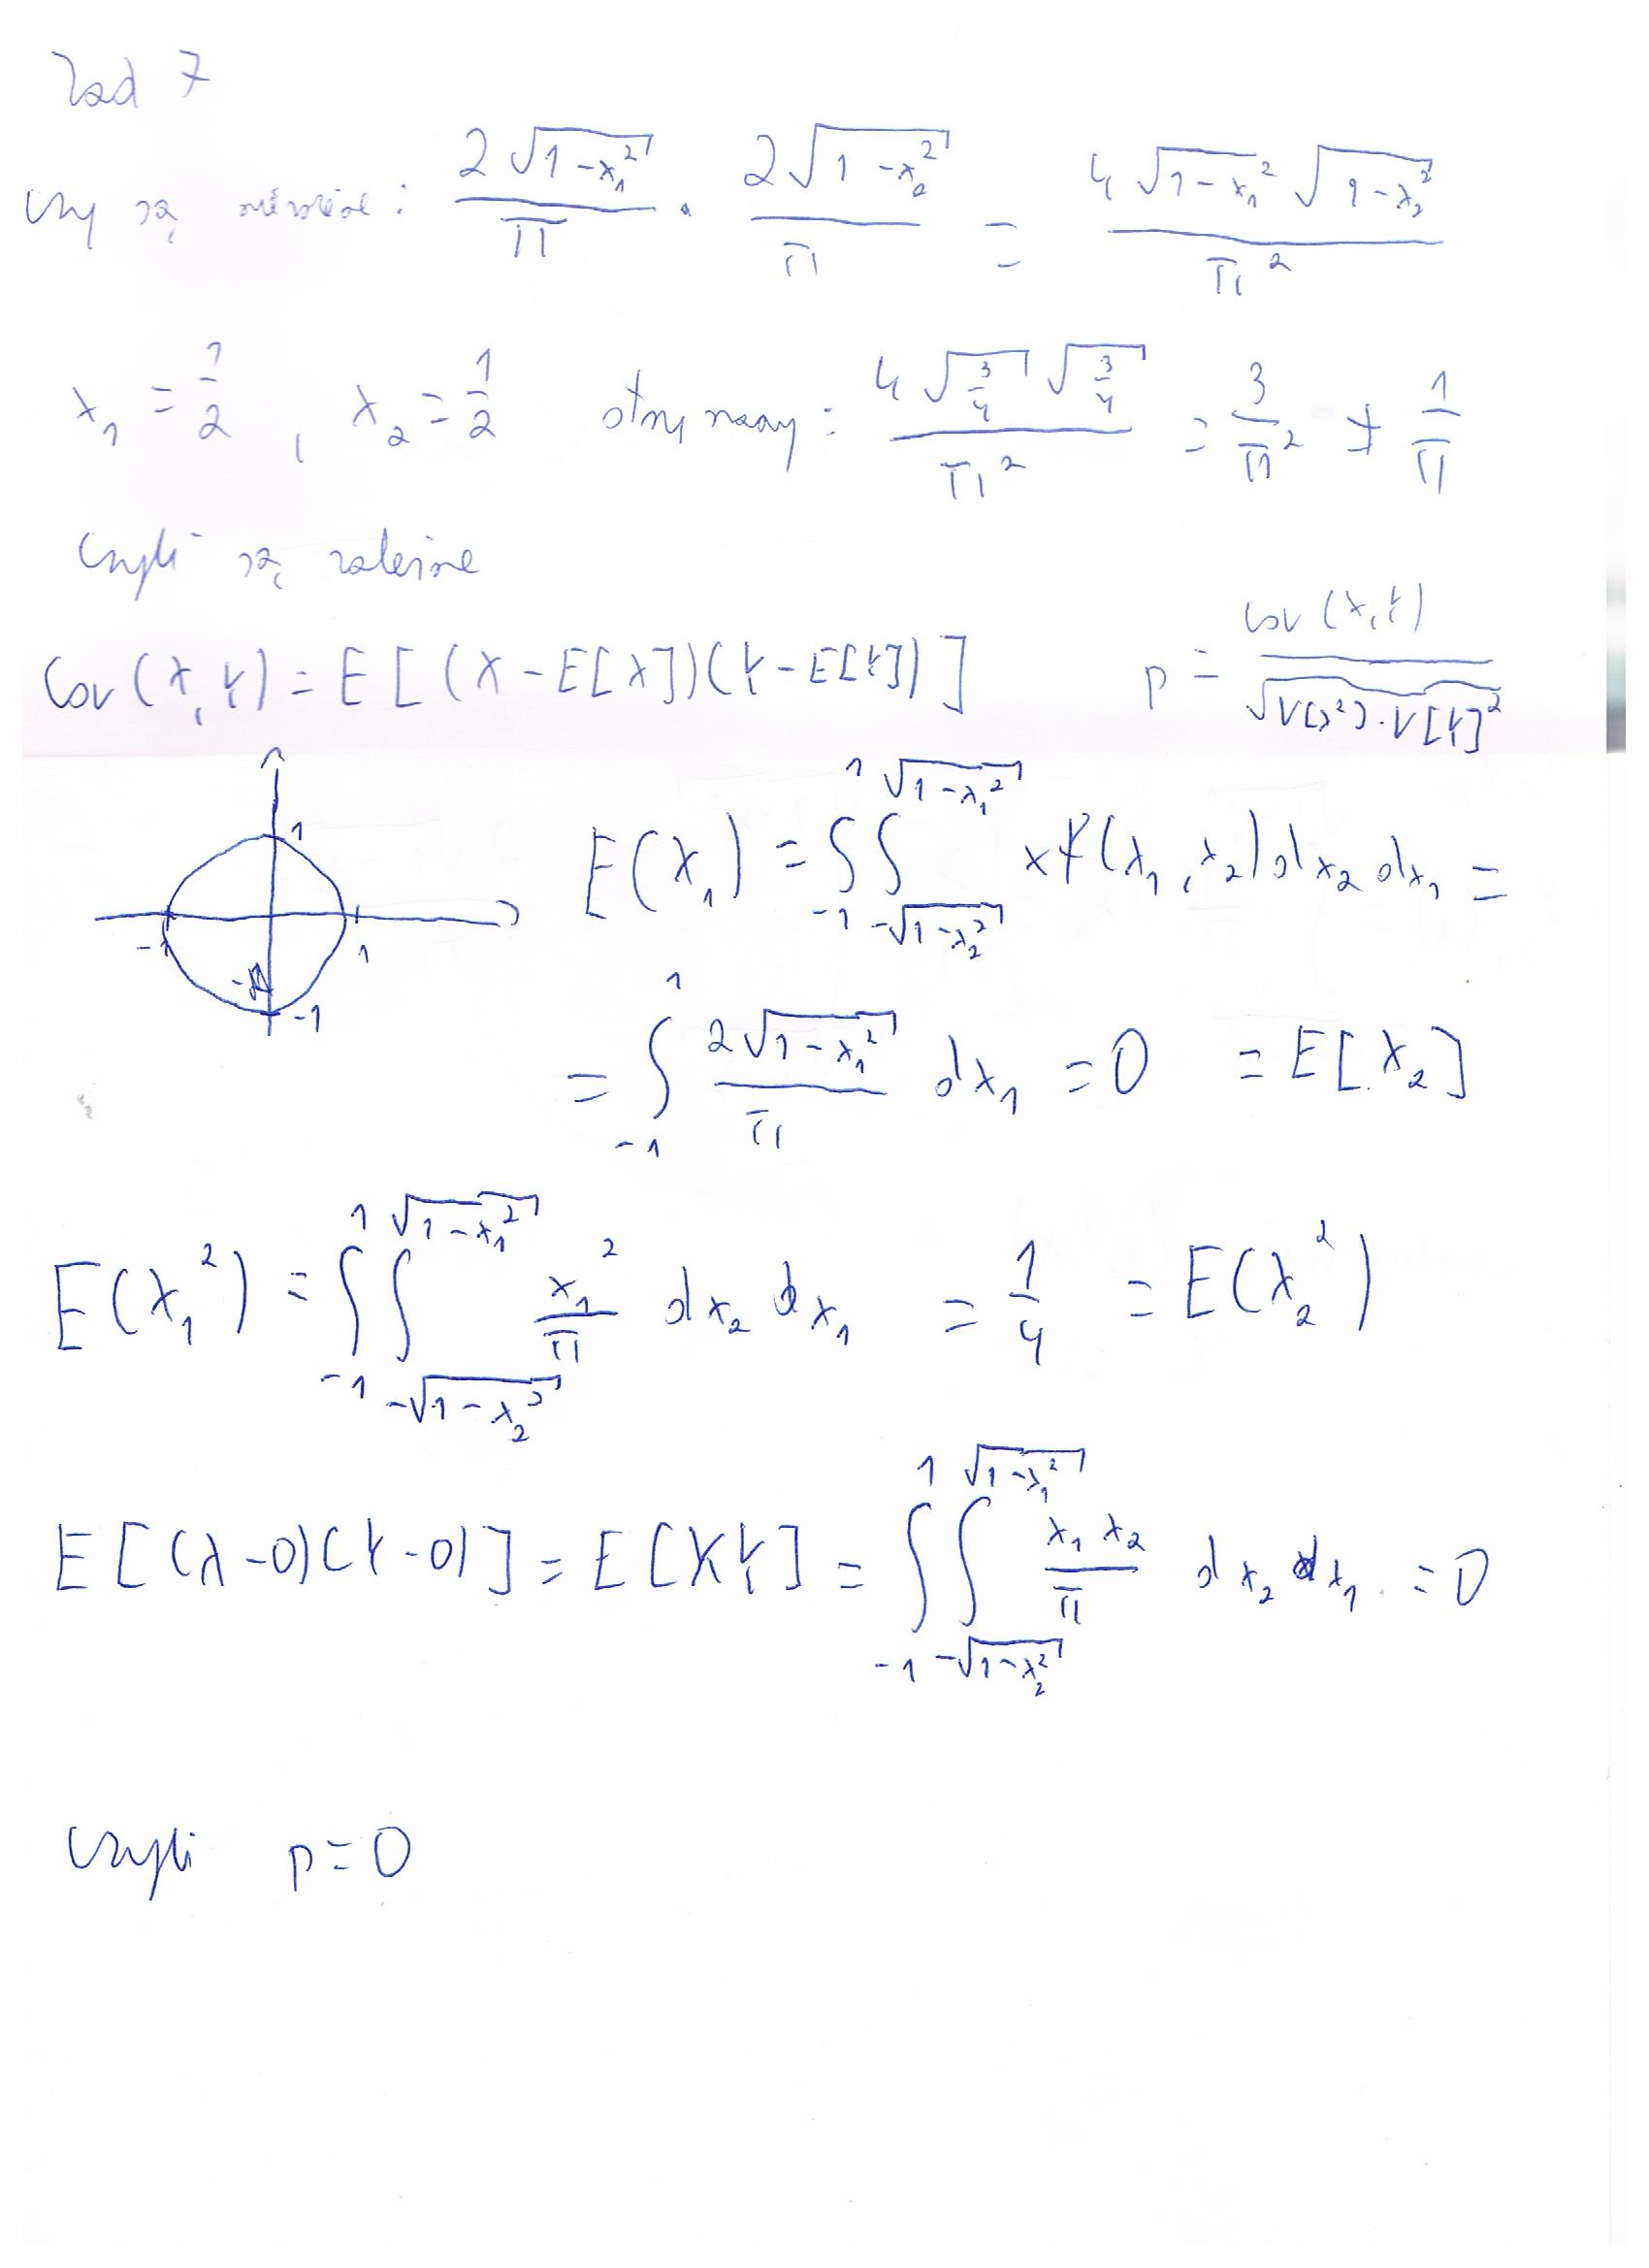 Zad 7
czy są niezależne: 2√(1-x₁²)/π · 2√(1-x₂²)/π = 4√(1-x₁²)√(1-x₂²)/π²
x₁ = 1/2, x₂ = 1/2 otrzymamy: 4√(3/4)√(3/4)/π² = 3/π² ≠ 1/π
czyli są zależne
Cov(X,Y) = E[(X-E[X])(Y-E[Y])] p = cov(X,Y)/√(V(X²)·V[Y]²)
1
-1 1
-1
E(X₁) = ∫₋₁¹ ∫_{-√(1-x₂²)}^{√(1-x₁²)} x f(x₁,x₂) dx₂ dx₁ =
= ∫₋₁¹ 2√(1-x₁²)/π dx₁ = 0 = E[X₂]
E(X₁²) = ∫₋₁¹ ∫_{-√(1-x₂²)}^{√(1-x₁²)} x₁²/π dx₂ dx₁ = 1/4 = E(X₂²)
E[(X-0)(Y-0)] = E[XY] = ∫₋₁¹ ∫_{-√(1-x₂²)}^{√(1-x₁²)} x₁x₂/π dx₂ dx₁ = 0
czyli p=0